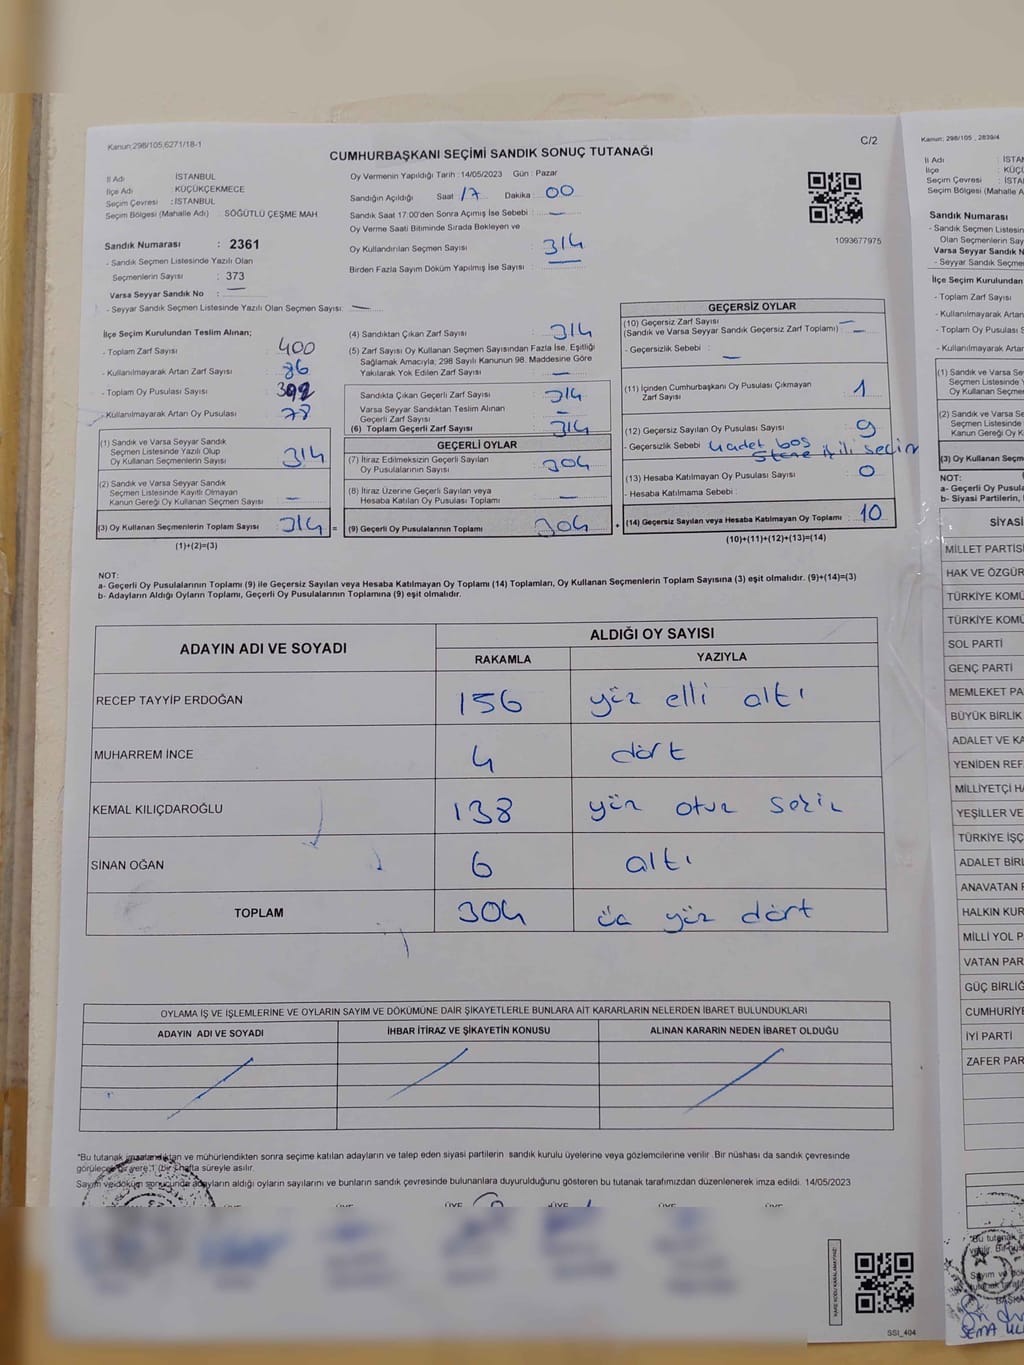 Kanun:298/105,6271/18-1
C/2
CUMHURBAŞKANI SEÇİMİ SANDIK SONUÇ TUTANAĞI
İl Adı : İSTANBUL
İlçe Adı : KÜÇÜKÇEKMECE
Seçim Çevresi : İSTANBUL
Seçim Bölgesi (Mahalle Adı) : SÖĞÜTLÜ ÇEŞME MAH
Sandık Numarası : 2361
- Sandık Seçmen Listesinde Yazılı Olan
Seçmenlerin Sayısı : 373
Varsa Seyyar Sandık No : —
- Seyyar Sandık Seçmen Listesinde Yazılı Olan Seçmen Sayısı: —
Oy Vermenin Yapıldığı Tarih : 14/05/2023 Gün : Pazar
Sandığın Açıldığı Saat 17 Dakika : 00
Sandık Saat 17:00'den Sonra Açımış İse Sebebi : —
Oy Verme Saati Bitiminde Sırada Bekleyen ve
Oy Kullandırılan Seçmen Sayısı : 314
Birden Fazla Sayım Döküm Yapılmış İse Sayısı : —
1093677975
İlçe Seçim Kurulundan Teslim Alınan;
- Toplam Zarf Sayısı : 400
- Kullanılmayarak Artan Zarf Sayısı : 86
- Toplam Oy Pusulası Sayısı : 392
- Kullanılmayarak Artan Oy Pusulası : 78
(1) Sandık ve Varsa Seyyar Sandık
Seçmen Listesinde Yazılı Olup
Oy Kullanan Seçmenlerin Sayısı : 314
(2) Sandık ve Varsa Seyyar Sandık
Seçmen Listesinde Kayıtlı Olmayan
Kanun Gereği Oy Kullanan Seçmen Sayısı : —
(3) Oy Kullanan Seçmenlerin Toplam Sayısı : 314 =
(1)+(2)=(3)
(4) Sandıktan Çıkan Zarf Sayısı : 314
(5) Zarf Sayısı Oy Kullanan Seçmen Sayısından Fazla İse, Eşitliği
Sağlamak Amacıyla, 298 Sayılı Kanunun 98. Maddesine Göre
Yakılarak Yok Edilen Zarf Sayısı : —
Sandıkta Çıkan Geçerli Zarf Sayısı : 314
Varsa Seyyar Sandıktan Teslim Alınan
Geçerli Zarf Sayısı : —
(6) Toplam Geçerli Zarf Sayısı : 314
GEÇERLİ OYLAR
(7) İtiraz Edilmeksizin Geçerli Sayılan
Oy Pusulalarının Sayısı : 304
(8) İtiraz Üzerine Geçerli Sayılan veya
Hesaba Katılan Oy Pusulası Toplamı : —
(9) Geçerli Oy Pusulalarının Toplamı : 304 +
GEÇERSİZ OYLAR
(10) Geçersiz Zarf Sayısı : —
(Sandık ve Varsa Seyyar Sandık Geçersiz Zarf Toplamı) : —
- Geçersizlik Sebebi : —
(11) İçinden Cumhurbaşkanı Oy Pusulası Çıkmayan
Zarf Sayısı : 1
(12) Geçersiz Sayılan Oy Pusulası Sayısı : 9
- Geçersizlik Sebebi 4 adet boş
ikili seçim
(13) Hesaba Katılmayan Oy Pusulası Sayısı : 0
- Hesaba Katılmama Sebebi :
(14) Geçersiz Sayılan veya Hesaba Katılmayan Oy Toplamı : 10
(10)+(11)+(12)+(13)=(14)
NOT:
a- Geçerli Oy Pusulalarının Toplamı (9) ile Geçersiz Sayılan veya Hesaba Katılmayan Oy Toplamı (14) Toplamları, Oy Kullanan Seçmenlerin Toplam Sayısına (3) eşit olmalıdır. (9)+(14)=(3)
b- Adayların Aldığı Oyların Toplamı, Geçerli Oy Pusulalarının Toplamına (9) eşit olmalıdır.
ADAYIN ADI VE SOYADI ALDIĞI OY SAYISI
RAKAMLA YAZIYLA
RECEP TAYYİP ERDOĞAN 156 yüz elli altı
MUHARREM İNCE 4 dört
KEMAL KILIÇDAROĞLU 138 yüz otuz sekiz
SİNAN OĞAN 6 altı
TOPLAM 304 üç yüz dört
OYLAMA İŞ VE İŞLEMLERİNE VE OYLARIN SAYIM VE DÖKÜMÜNE DAİR ŞİKAYETLERLE BUNLARA AİT KARARLARIN NELERDEN İBARET BULUNDUKLARI
ADAYIN ADI VE SOYADI İHBAR İTİRAZ VE ŞİKAYETİN KONUSU ALINAN KARARIN NEDEN İBARET OLDUĞU
*Bu tutanak imzalandıktan ve mühürlendikten sonra seçime katılan adayların ve talep eden siyasi partilerin sandık kurulu üyelerine veya gözlemcilerine verilir. Bir nüshası da sandık çevresinde
görülecek bir yere 1 (bir) hafta süreyle asılır.
Sayım ve döküm sonucunda adayların aldığı oyların sayılarını ve bunların sandık çevresinde bulunanlara duyurulduğunu gösteren bu tutanak tarafımızdan düzenlenerek imza edildi. 14/05/2023
SSI_404
Kanun: 298/105 , 2839/4
İl Adı : İSTAN
İlçe : KÜÇÜ
Seçim Çevresi : İSTA
Seçim Bölgesi (Mahalle A
Sandık Numarası
- Sandık Seçmen Listesin
Olan Seçmenlerin Sayı
Varsa Seyyar Sandık N
- Seyyar Sandık Seçme
İlçe Seçim Kurulundan
- Toplam Zarf Sayısı
- Kullanılmayarak Artan
- Toplam Oy Pusulası S
- Kullanılmayarak Artan
(1) Sandık ve Varsa Se
Seçmen Listesinde Y
Oy Kullanan Seçmen
(2) Sandık ve Varsa Se
Seçmen Listesinde K
Kanun Gereği Oy K
(3) Oy Kullanan Seçm
NOT:
a- Geçerli Oy Pusula
b- Siyasi Partilerin,
SİYASİ
MİLLET PARTİSİ
HAK VE ÖZGÜR
TÜRKİYE KOMÜ
TÜRKİYE KOMÜ
SOL PARTİ
GENÇ PARTİ
MEMLEKET PA
BÜYÜK BİRLİK
ADALET VE KA
YENİDEN REF
MİLLİYETÇİ HA
YEŞİLLER VE
TÜRKİYE İŞÇ
ADALET BİRL
ANAVATAN P
HALKIN KUR
MİLLİ YOL P
VATAN PAR
GÜÇ BİRLİĞ
CUMHURİYE
İYİ PARTİ
ZAFER PAR